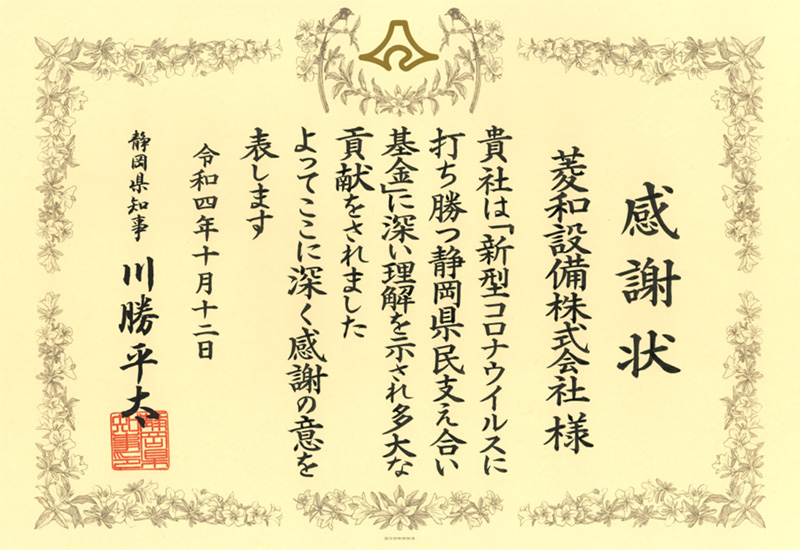 感謝状
菱和設備株式会社 様
貴社は「新型コロナウイルスに
打ち勝つ静岡県民支え合い
基金」に深い理解を示され多大な
貢献をされました
よってここに深く感謝の意を
表します
令和四年十月十二日
静岡県知事 川勝平太